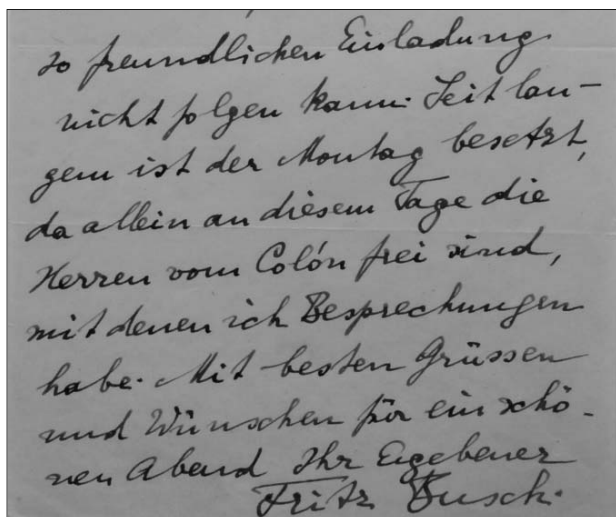 so freundlichen Einladung
nicht folgen kann. Seit lan-
gem ist der Montag besetzt,
da allein an diesem Tage die
Herren vom Colón frei sind,
mit denen ich Besprechungen
habe. Mit besten Grüssen
und Wünschen für ein schö-
nen Abend Ihr Ergebener
Fritz Busch.